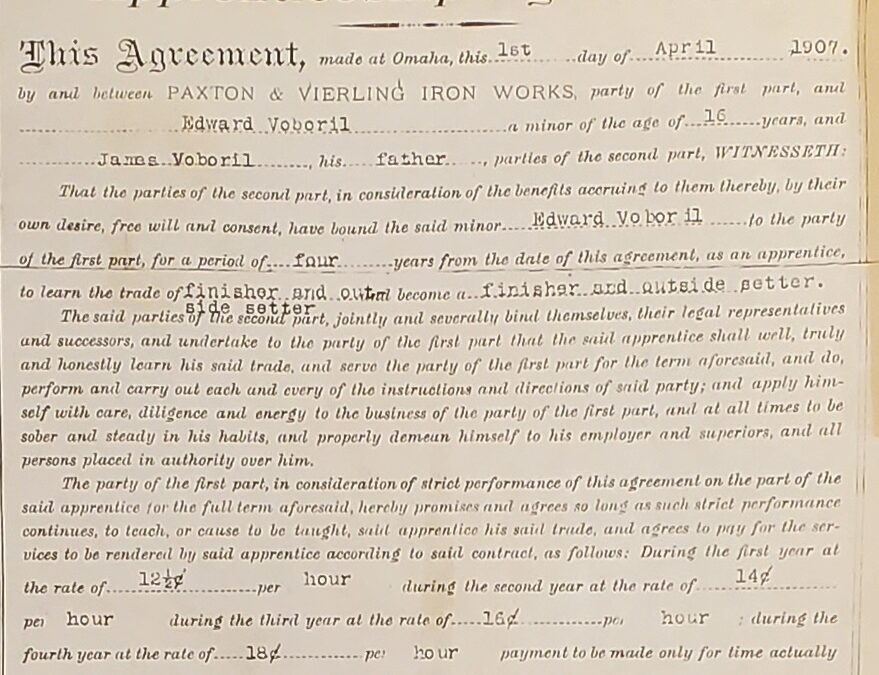 This Agreement, made at Omaha, this 1st day of April 1907.
by and between PAXTON & VIERLING IRON WORKS, party of the first part, and
Edward Voboril a minor of the age of 16 years, and
James Voboril, his father, parties of the second part, WITNESSETH:
That the parties of the second part, in consideration of the benefits accruing to them thereby, by their
own desire, free will and consent, have bound the said minor Edward Voboril to the party
of the first part, for a period of four years from the date of this agreement, as an apprentice,
to learn the trade of finisher and out and become a finisher and outside setter.
side setter
The said parties of the second part, jointly and severally bind themselves, their legal representatives
and successors, and undertake to the party of the first part that the said apprentice shall well, truly
and honestly learn his said trade, and serve the party of the first part for the term aforesaid, and do,
perform and carry out each and every of the instructions and directions of said party; and apply him-
self with care, diligence and energy to the business of the party of the first part, and at all times to be
sober and steady in his habits, and properly demean himself to his employer and superiors, and all
persons placed in authority over him.
The party of the first part, in consideration of strict performance of this agreement on the part of the
said apprentice for the full term aforesaid, hereby promises and agrees so long as such strict performance
continues, to teach, or cause to be taught, said apprentice his said trade, and agrees to pay for the ser-
vices to be rendered by said apprentice according to said contract, as follows: During the first year at
the rate of 12½¢ per hour during the second year at the rate of 14¢
per hour during the third year at the rate of 16¢ per hour ; during the
fourth year at the rate of 18¢ per hour payment to be made only for time actually